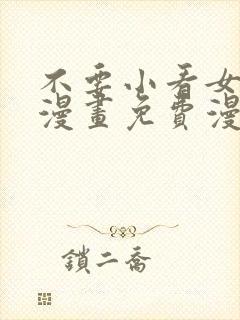 不要小看女
漫畫免費漫
鎖二喬